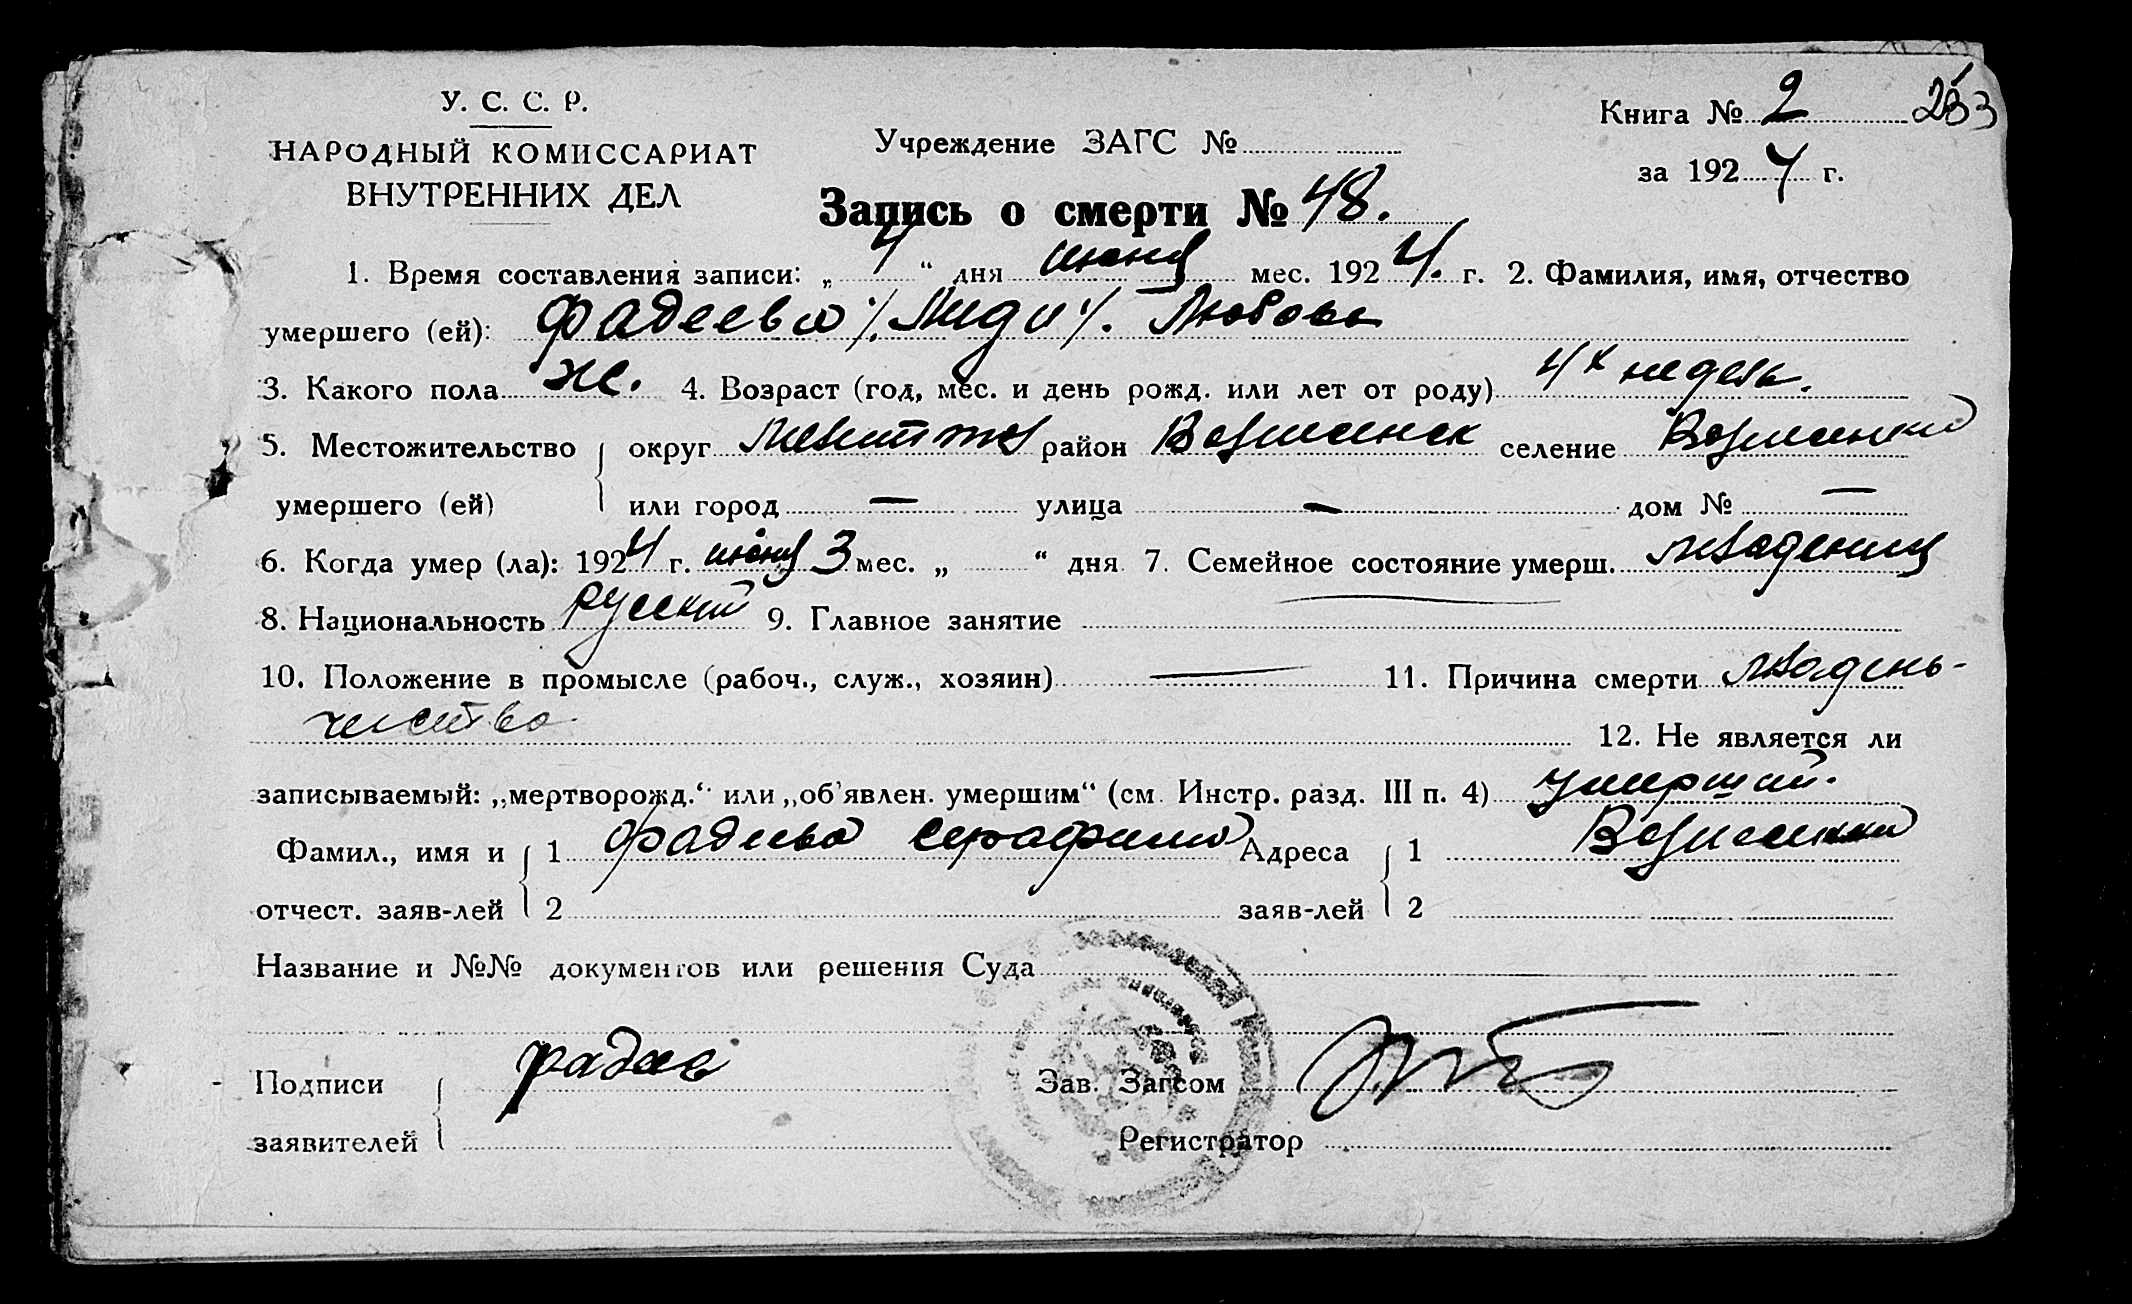 У. С. С. Р.
НАРОДНЫЙ КОМИССАРИАТ
ВНУТРЕННИХ ДЕЛ
Учреждение ЗАГС №
Книга № 2
за 1924 г.
Запись о смерти № 48.
1. Время составления записи: „ 4 “ дня июня мес. 1924. г. 2. Фамилия, имя, отчество
умершего (ей): Фадеева Любовь
3. Какого пола ж. 4. Возраст (год, мес. и день рожд. или лет от роду) 4х недель.
5. Местожительство округ район селение
умершего (ей) или город — улица — дом № —
6. Когда умер (ла): 1924 г. июня 3 мес. „ “ дня 7. Семейное состояние умерш. младенец
8. Национальность русский 9. Главное занятие —
10. Положение в промысле (рабоч., служ., хозяин) — 11. Причина смерти младен-
чество
12. Не является ли
записываемый: „мертворожд.“ или „об'явлен. умершим“ (см. Инстр. разд. III п. 4) умерший.
Фамил., имя и 1 Фадеева Серафима Адреса 1
отчест. заяв-лей 2 заяв-лей 2
Название и №№ документов или решения Суда
Подписи Зав. Загсом
заявителей Регистратор